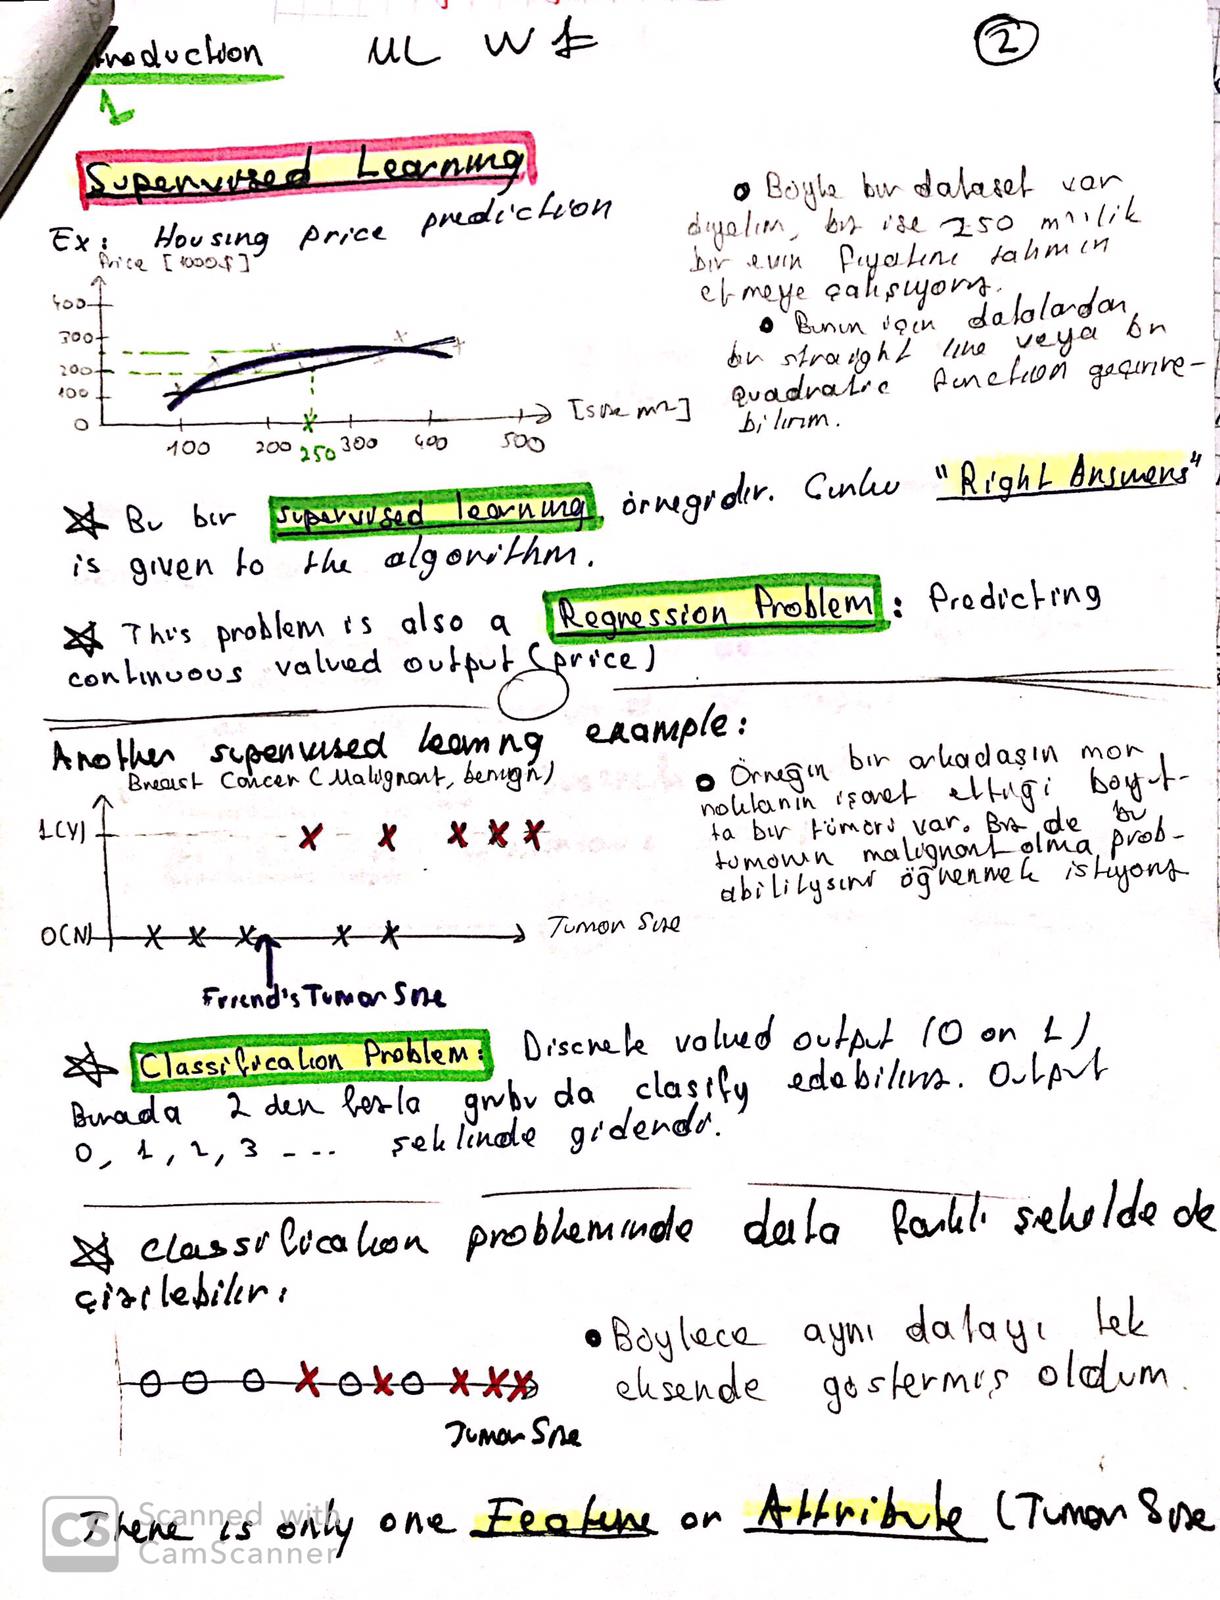 Introduction ML W1
2
1
Supervised Learning
Ex: Housing price prediction
Price [1000$]
400
300
200
100
0
100 200 250 300 400 500
[size m²]
• Böyle bir dataset var
diyelim, biz ise 250 m² lik
bir evin fiyatını tahmin
etmeye çalışıyoruz.
• Bunun için datalardan
bir straight line veya bir
quadratic function geçirire-
bilirim.
Bu bir supervised learning örneğidir. Çünkü "Right Answers"
is given to the algorithm.
This problem is also a Regression Problem: Predicting
continuous valued output (price)
Another supervised learning example:
Breast Cancer (Malignant, benign)
1(Y)
0(N)
Tumor Size
Friend's Tumor Size
• Örneğin bir arkadaşın mor
noktanın işaret ettiği boyut-
ta bir tümörü var. Biz de bu
tümörün malignant olma prob-
abilitysini öğrenmek istiyoruz
Classification Problem: Discrete valued output (0 or 1)
Burada 2 den fazla grubu da clasify edebiliriz. Output
0, 1, 2, 3 ---- şeklinde giderdi.
Classification probleminde data farklı şekilde de
çizilebilir:
Tumor Size
• Böylece aynı datayı tek
eksende göstermiş oldum.
There is only one Feature or Attribute (Tumor Size
CS Scanned with
CamScanner